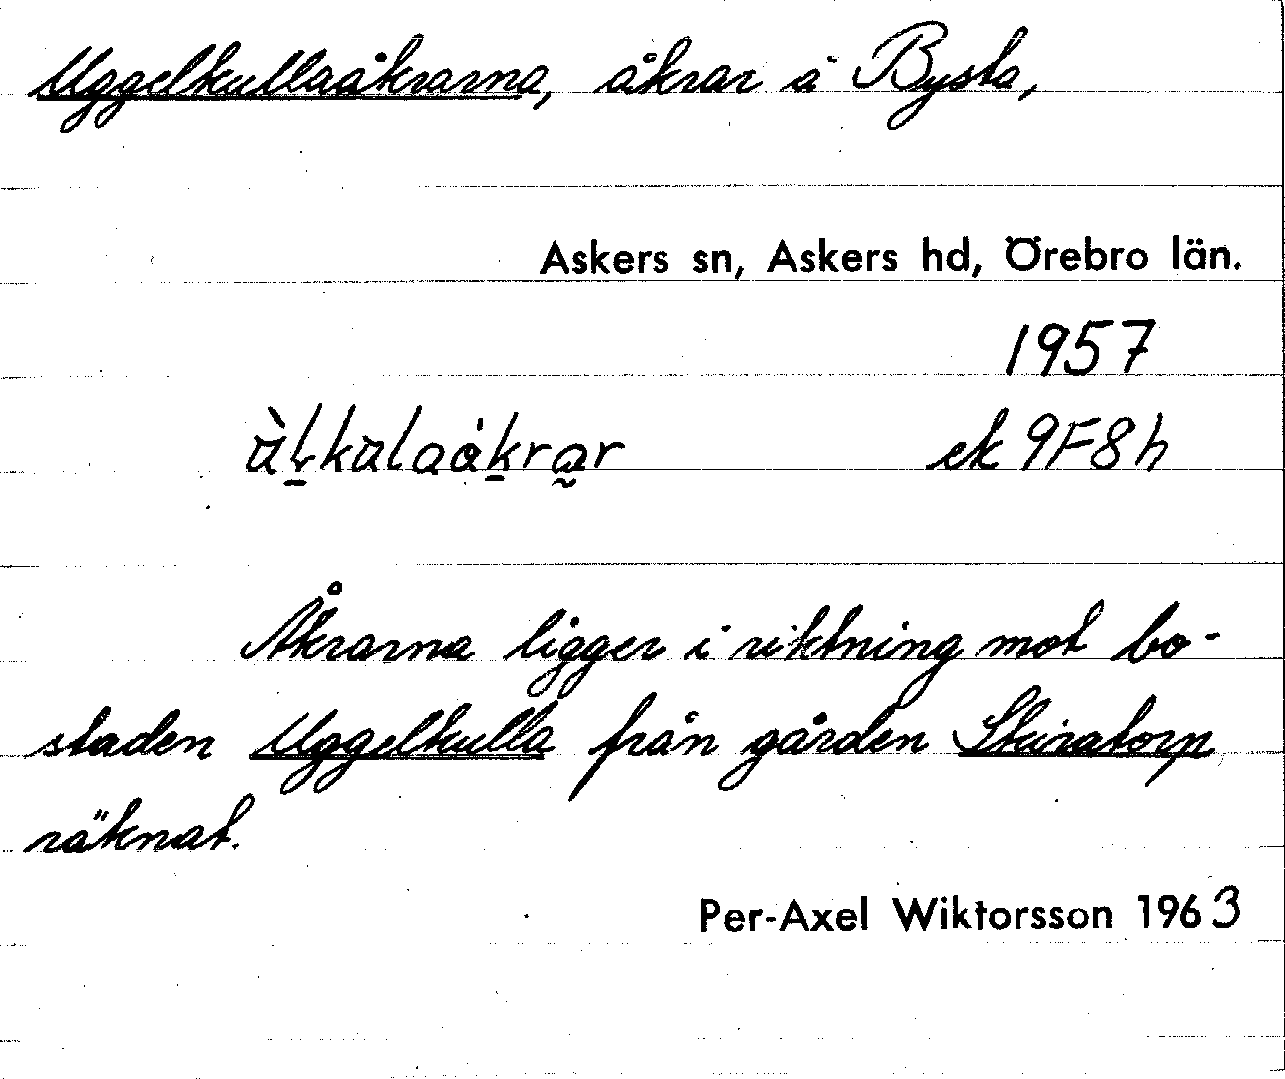 Uggelkullaåkrarna, åkrar å Bysta,
Askers sn, Askers hd, Örebro län.
1957
ek 9F8h
Åkrarna ligger i riktning mot bo-
staden Uggelkulla från gården Skiratorp
räknat.
Per-Axel Wiktorsson 1963